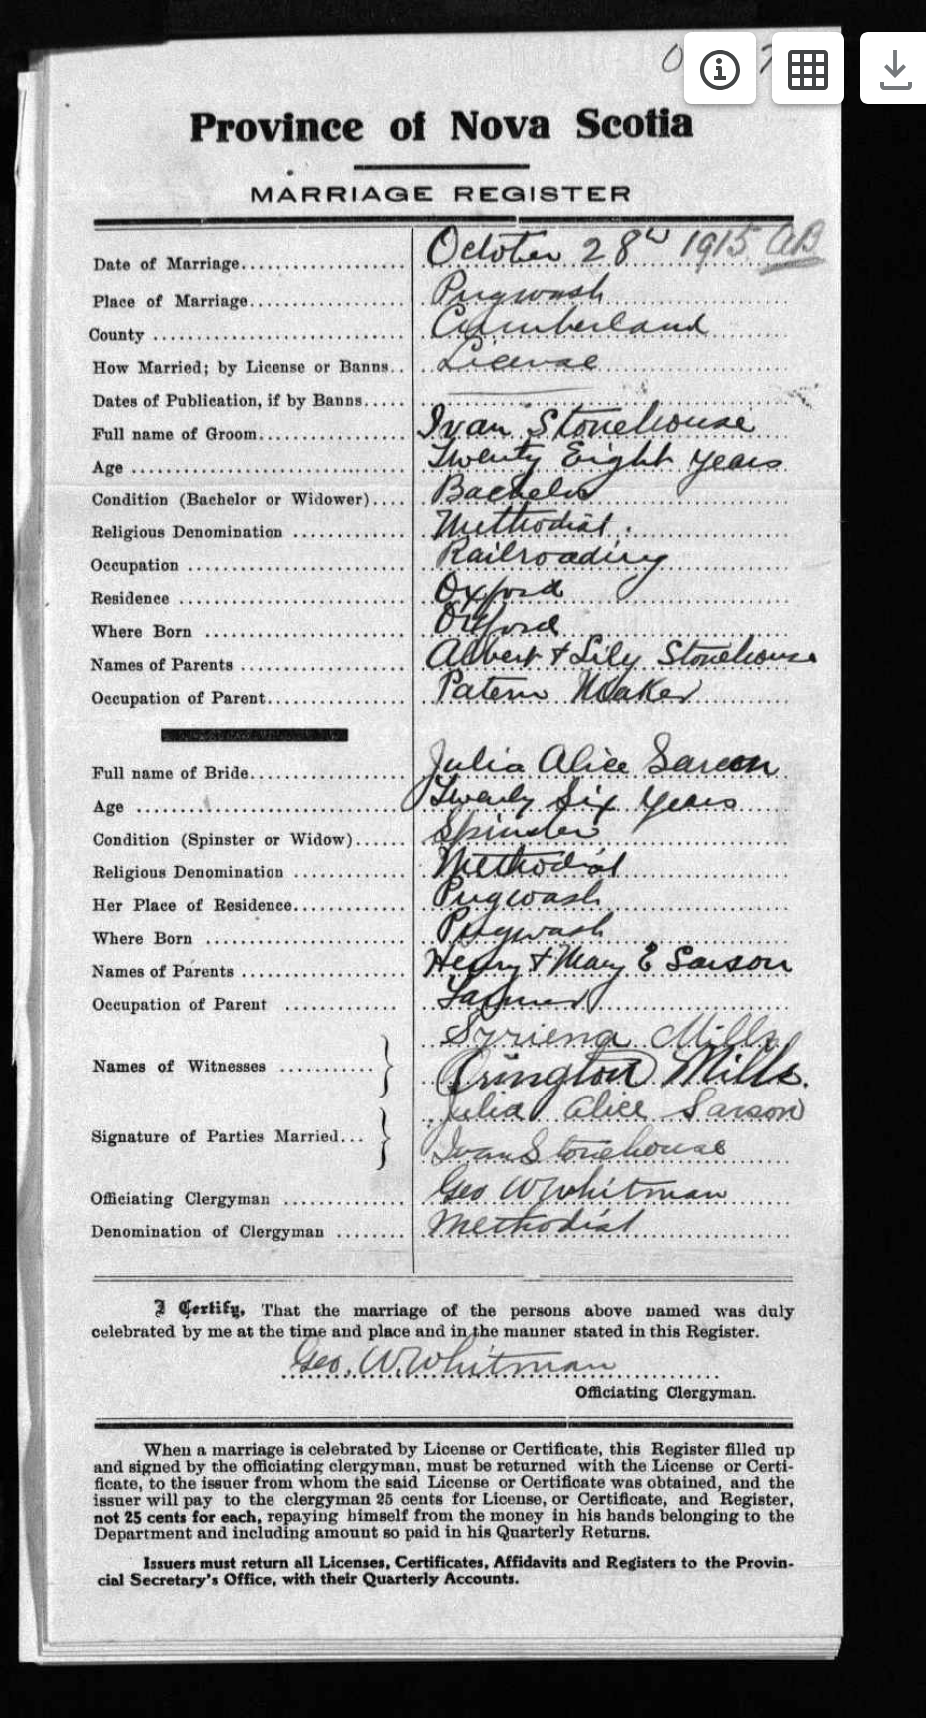 Province of Nova Scotia
MARRIAGE REGISTER
Date of Marriage October 28th 1915 AB
Place of Marriage Pugwash
County Cumberland
How Married; by License or Banns License
Dates of Publication, if by Banns
Full name of Groom Ivan Stonehouse
Age Twenty Eight years
Condition (Bachelor or Widower) Bachelor
Religious Denomination Methodist.
Occupation Railroading
Residence Oxford
Where Born Oxford
Names of Parents Albert & Lily Stonehouse
Occupation of Parent Patern Maker
Full name of Bride Julia Alice Sarson
Age Twenty Six years
Condition (Spinster or Widow) Spinster
Religious Denomination Methodist
Her Place of Residence Pugwash
Where Born Pugwash
Names of Parents Henry & Mary E Sarson
Occupation of Parent Farmer
Names of Witnesses } Syriena Mills
Arington Mills.
Signature of Parties Married } Julia Alice Sarson
Ivan Stonehouse
Officiating Clergyman Geo W Whitman
Denomination of Clergyman Methodist
I Certify, That the marriage of the persons above named was duly
celebrated by me at the time and place and in the manner stated in this Register.
Geo. W. Whitman
Officiating Clergyman.
When a marriage is celebrated by License or Certificate, this Register filled up
and signed by the officiating clergyman, must be returned with the License or Certi-
ficate, to the issuer from whom the said License or Certificate was obtained, and the
issuer will pay to the clergyman 25 cents for License, or Certificate, and Register,
not 25 cents for each, repaying himself from the money in his hands belonging to the
Department and including amount so paid in his Quarterly Returns.
Issuers must return all Licenses, Certificates, Affidavits and Registers to the Provin-
cial Secretary's Office, with their Quarterly Accounts.